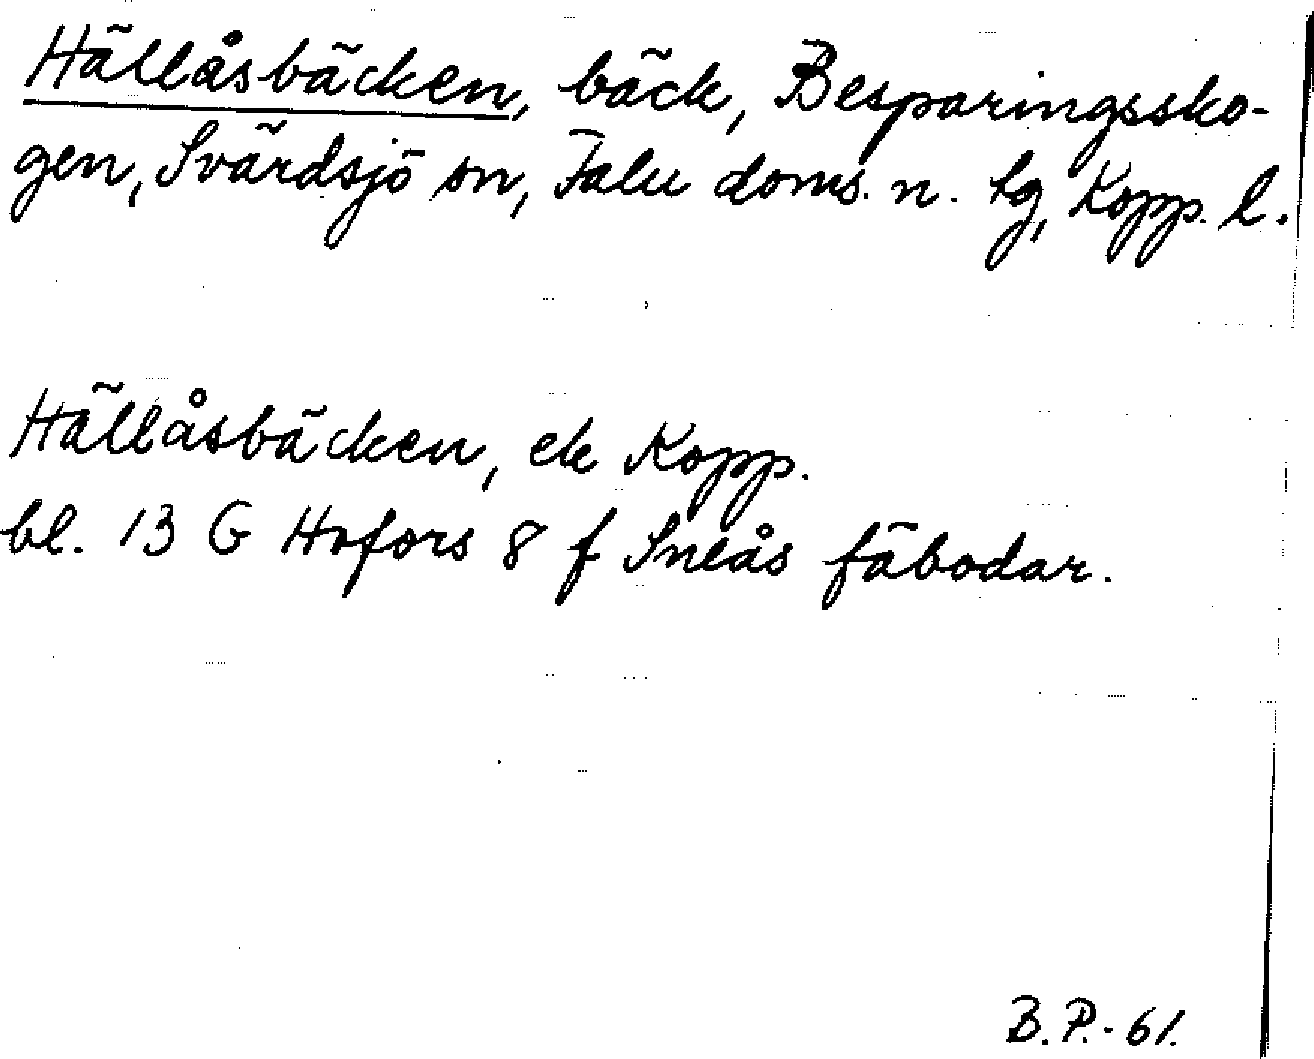 Hällåsbäcken, bäck, Besparingssko-
gen, Svärdsjö sn, Falu doms. n. tg, Kopp. l.
Hällåsbäcken, ek Kopp.
bl. 13 G Hofors 8 f Snlås fäbodar.
B. P. - 61.